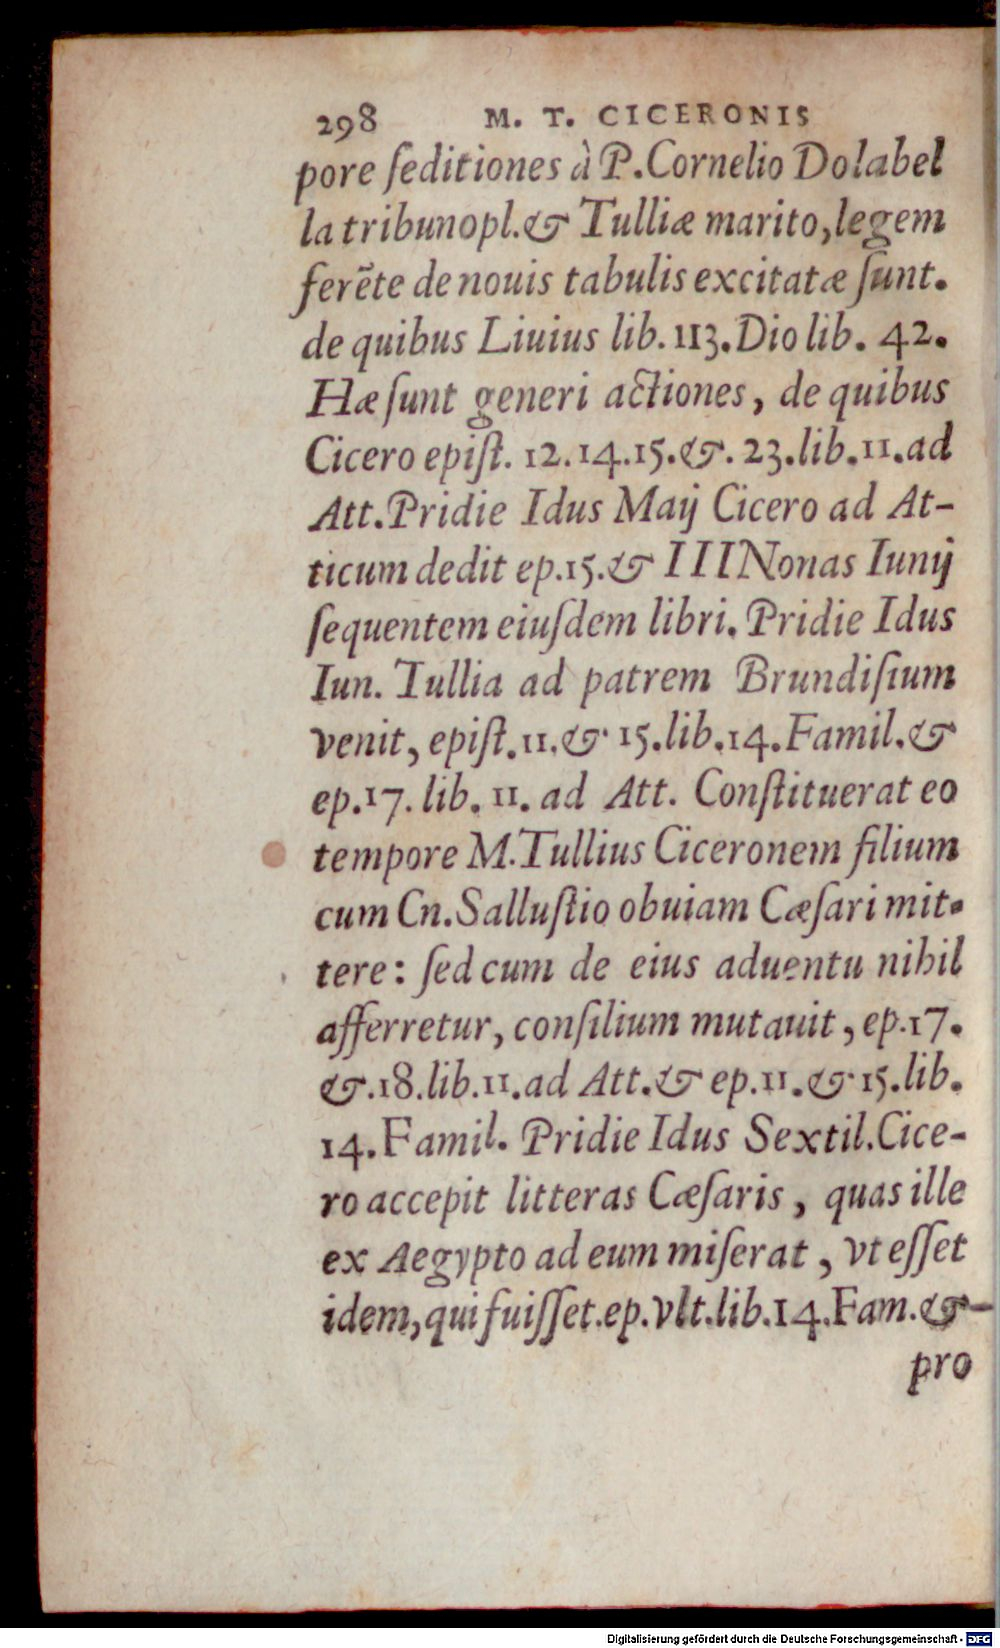 298 M. T. CICERONIS
pore ſeditiones à P. Cornelio Dolabel
la tribuno pl. & Tulliæ marito, legem
ferẽte de nouis tabulis excitatæ ſunt.
de quibus Liuius lib. 113. Dio lib. 42.
Hæ ſunt generi actiones, de quibus
Cicero epiſt. 12. 14. 15. &. 23. lib. 11. ad
Att. Pridie Idus Maij Cicero ad At-
ticum dedit ep. 15. & III Nonas Iunij
ſequentem eiuſdem libri. Pridie Idus
Iun. Tullia ad patrem Brundiſium
venit, epiſt. 11. & 15. lib. 14. Famil. &
ep. 17. lib. 11. ad Att. Conſtituerat eo
tempore M. Tullius Ciceronem filium
cum Cn. Salluſtio obuiam Cæſari mit-
tere: ſed cum de eius aduentu nihil
afferretur, conſilium mutauit, ep. 17.
&. 18. lib. 11. ad Att. & ep. 11. & 15. lib.
14. Famil. Pridie Idus Sextil. Cice-
ro accepit litteras Cæſaris, quas ille
ex Aegypto ad eum miſerat, vt eſſet
idem, qui fuiſſet. ep. vlt. lib. 14. Fam. &
pro
Digitalisierung gefördert durch die Deutsche Forschungsgemeinschaft - DFG